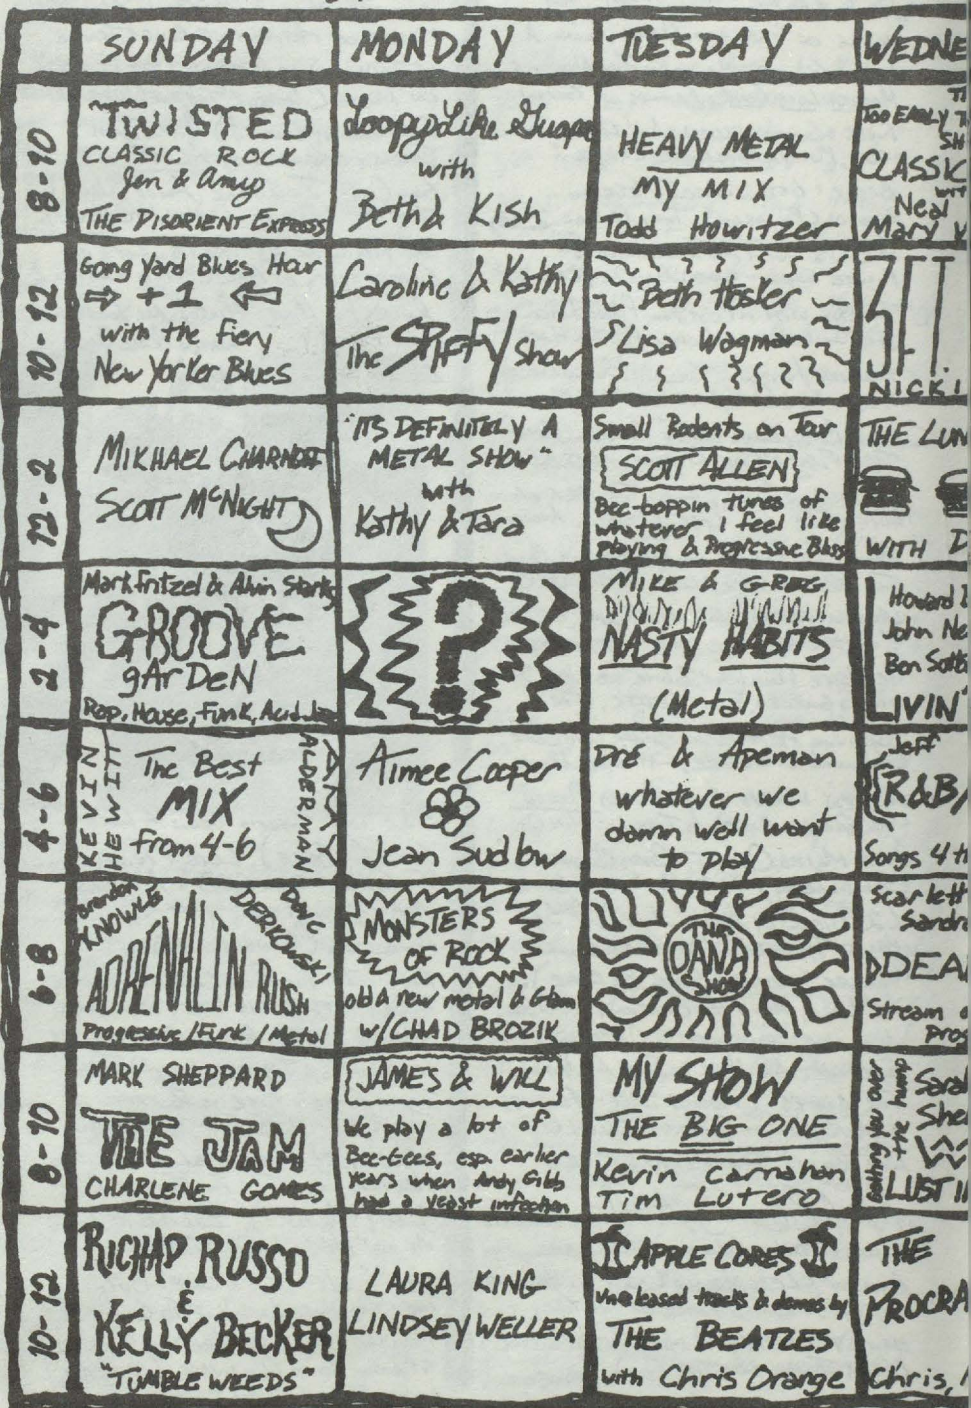 SUNDAY
MONDAY
TUESDAY
WEDNE
8-10
TWISTED
CLASSIC ROCK
Jen & Amy
THE DISORIENT EXPRESS
Loopy Like Guape
with
Beth & Kish
HEAVY METAL
MY MIX
Todd Howitzer
TOO EARLY T
SH
CLASSIC
WIT
Neal
Mary
10-12
Going Yard Blues Hour
⇨ +1 ⇦
with the fiery
New Yorker Blues
Caroline & Kathy
The SPIFFY Show
Beth Hosler
Lisa Wagman
3FT.
NICKI
12-2
MIKHAEL CHARNOFF
SCOTT McNIGHT
"ITS DEFINITELY A
METAL SHOW"
with
Kathy & Tara
Small Rodents on Tour
SCOTT ALLEN
Bee-boppin tunes of
whatever I feel like
playing & Progressive Blues
THE LUN
WITH D
2-4
Mark Fritzel & Alvin Starks
GROOVE
gArDeN
Rap, House, Funk, Acid Jazz
?
MIKE & GREG
NASTY HABITS
(Metal)
Howard
John Ne
Ben Sotto
LIVIN'
4-6
KEVIN
HEWITT
The Best
MIX
from 4-6
AMY
ALDERMAN
Aimee Cooper
Jean Sudlow
Dré & Apeman
whatever we
damn well want
to play
Jeff
R&B/
Songs 4 th
6-8
Brandon
KNOWLE
DOUG
DERKOWSKI
ADRENALIN RUSH
Progressive/Funk/Metal
MONSTERS
OF ROCK
old & new metal & Glam
w/CHAD BROZIK
THE
DANA
SHOW
Scarlett
Sandra
DDEA
Stream o
prog
8-10
MARK SHEPPARD
THE JAM
CHARLENE GOMES
JAMES & WILL
We play a lot of
Bee-Gees, esp. earlier
years when Andy Gibb
had a yeast infection
MY SHOW
THE BIG ONE
Kevin Carnahan
Tim Lutero
Getting you over
the hump
Sarah
Shel
LUST I
10-12
RICHAD RUSSO
&
KELLY BECKER
"TUMBLE WEEDS"
LAURA KING
LINDSEY WELLER
APPLE CORES
unreleased tracks & demos by
THE BEATLES
with Chris Orange
THE
PROCRA
Chris,